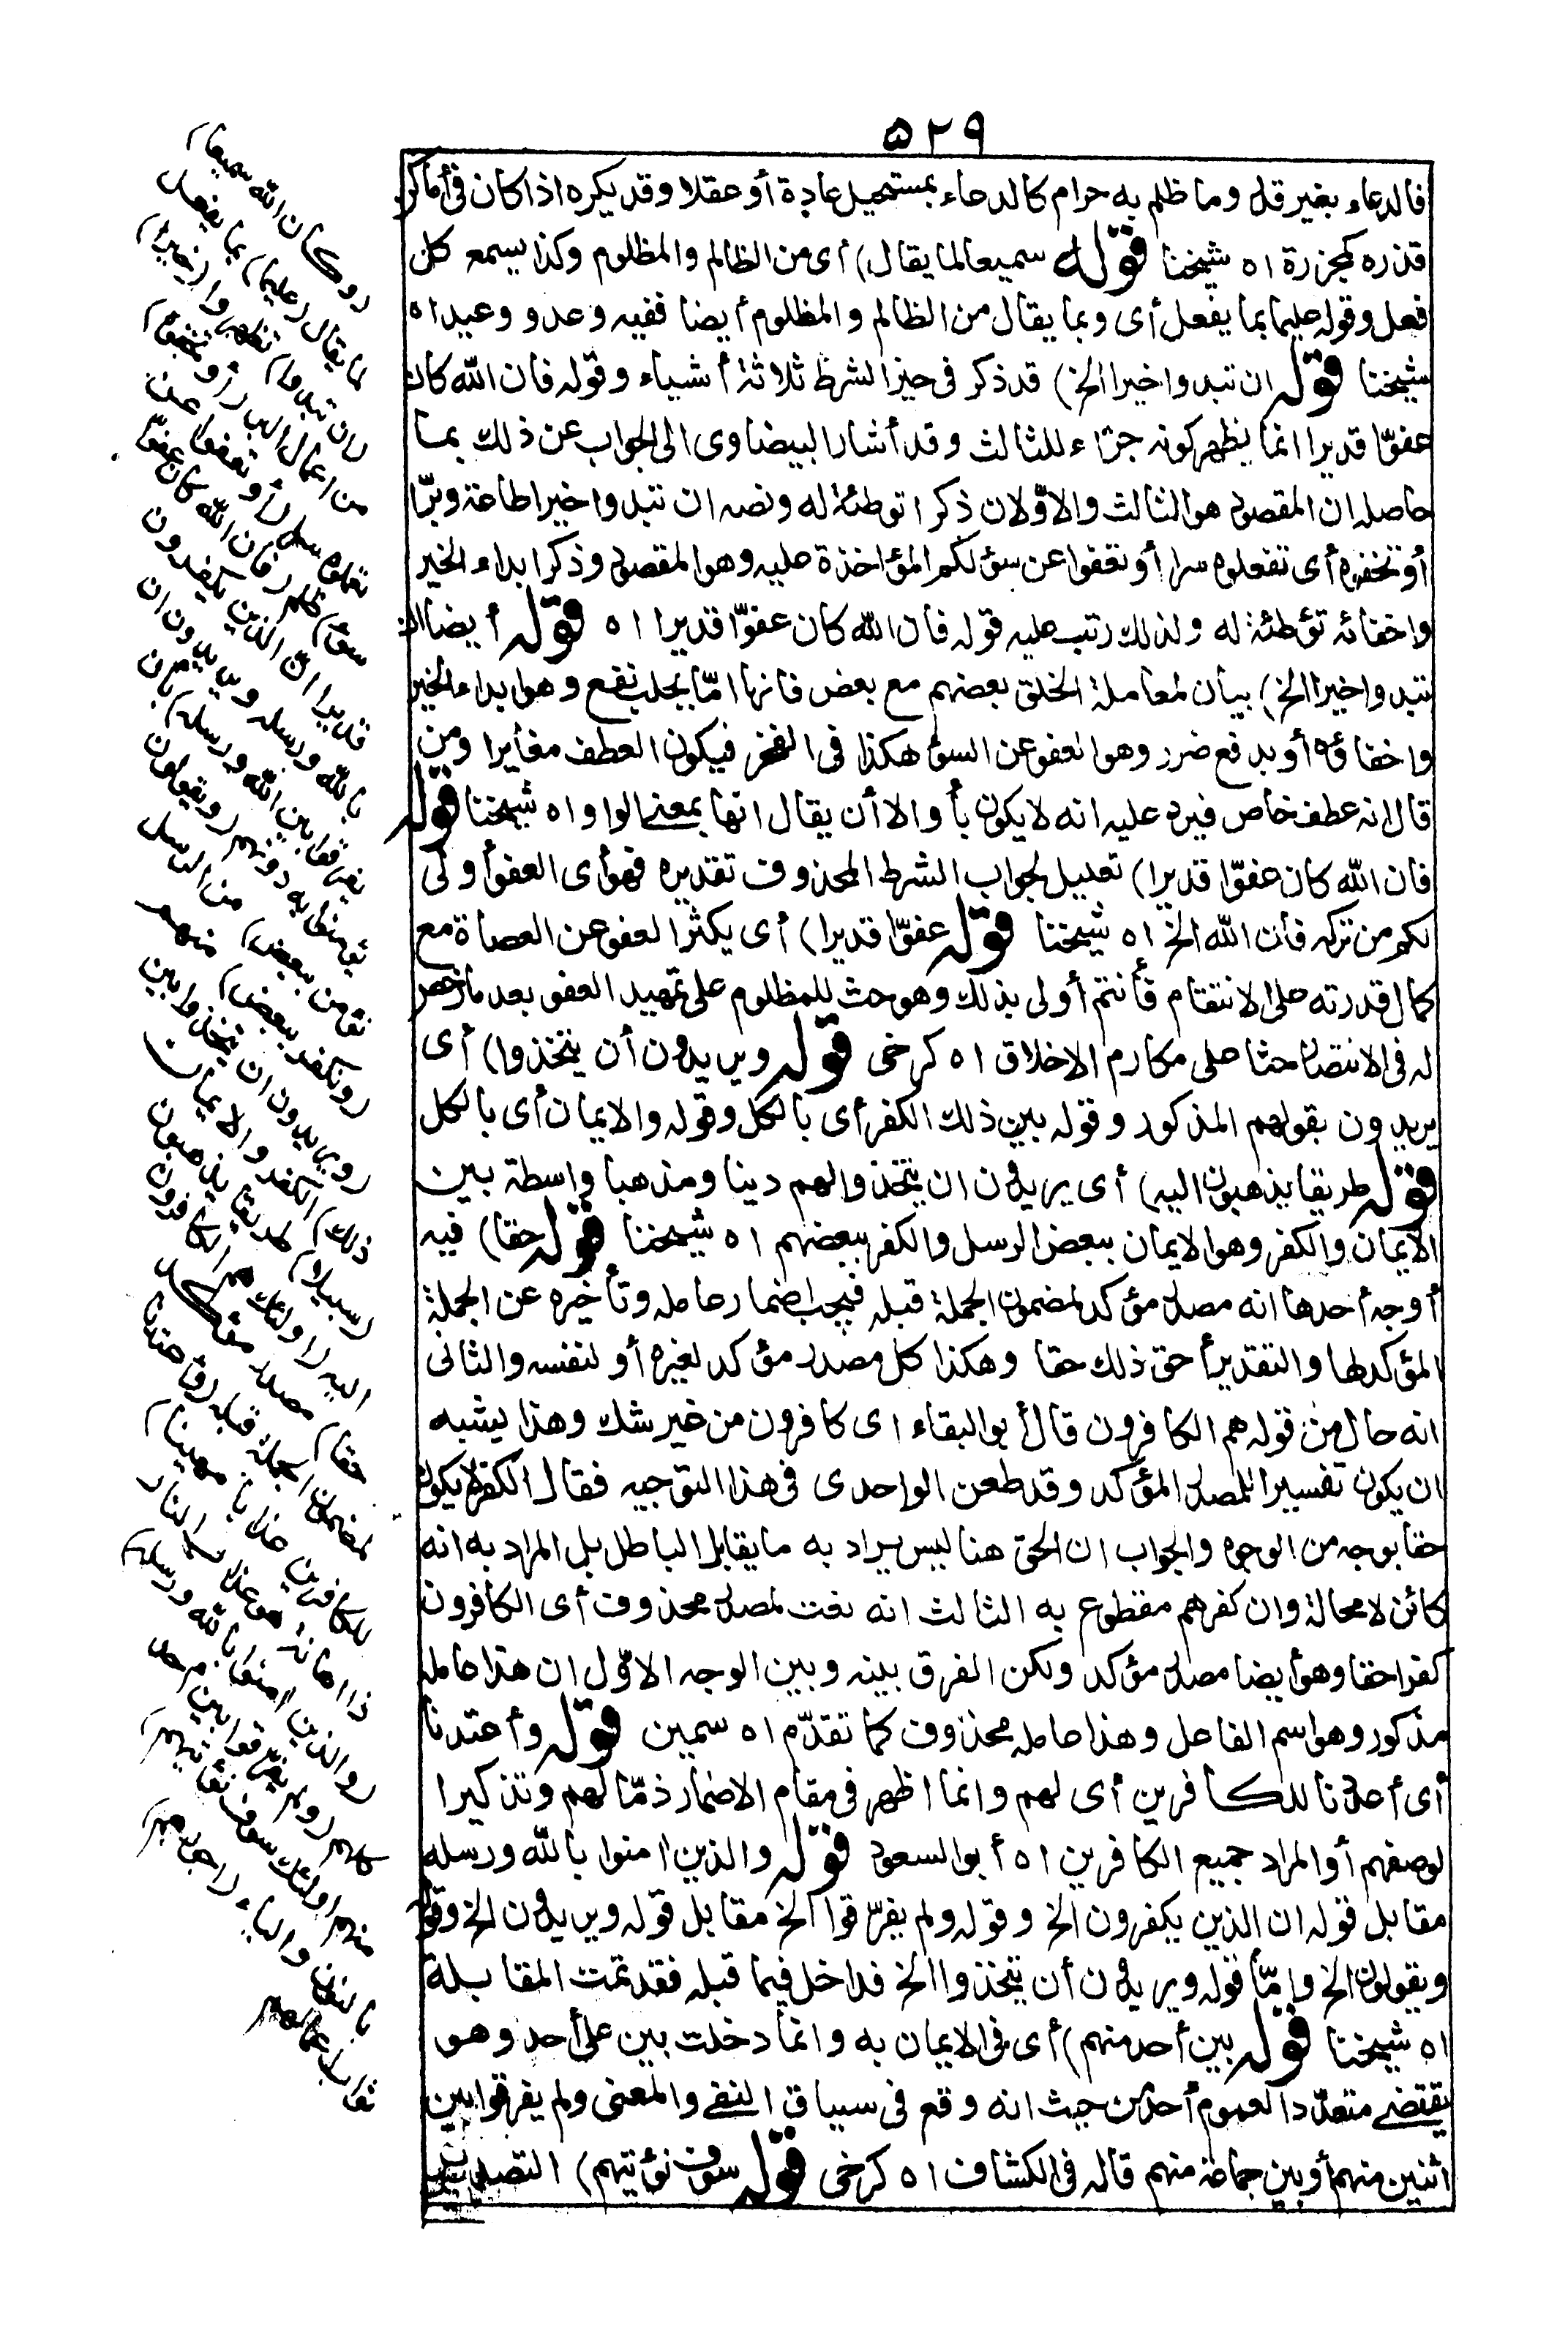 ٥٢٩
فالدعاء بغير قدر وما ظلم به حرام كالدعاء بمستحيل عادة أو عقلا وقد يكره اذا كان فى أماكن
قذره كمجزرة اه شيخنا قوله سميعا لما يقال) أى من الظالم والمظلوم وكذا يسمع كل
فعل وقوله عليما بما يفعل أى وبما يقال من الظالم والمظلوم أيضا ففيه وعد ووعيد اه
شيخنا قوله ان تبدوا خيرا الخ) قد ذكر فى حيز الشرط ثلاثة أشياء وقوله فان الله كان
عفوّا قديرا انما يظهر كونه جزاء للثالث وقد أشار البيضاوى الى الجواب عن ذلك بما
حاصله ان المقصود هو الثالث والاوّلان ذكرا توطئة له ونصه ان تبدوا خيرا طاعة وبرّا
أو تخفوه أى تفعلوه سرا أو تعفوا عن سوء لكم المؤاخذة عليه وهو المقصود وذكر ابداء الخير
واخفائه توطئة له ولذلك رتب عليه قوله فان الله كان عفوّا قديرا اه قوله أيضا ان
تبدوا خيرا الخ) بيان لمعاملة الخلق بعضهم مع بعض فانها امّا بجلب نفع وهو ابداء الخير
واخفاؤه أو بدفع ضرر وهو العفو عن السوء هكذا فى الفخر فيكون العطف مغايرا ومن
قال انه عطف خاص فيرد عليه انه لا يكون بأو الا أن يقال انها بمعنى الواو اه شيخنا قوله
فان الله كان عفوّا قديرا) تعليل لجواب الشرط المحذوف تقديره فهو أى العفو أولى
لكم من تركه فأن الله الخ اه شيخنا قوله عفوّا قديرا) أى يكثر العفو عن العصاة مع
كمال قدرته على الانتقام فأنتم أولى بذلك وهو حث للمظلوم على تمهيد العفو بعد ما رخص
له فى الانتصار حثا على مكارم الاخلاق اه كرخى قوله ويريدون أن يتخذوا) أى
يريدون بقولهم المذكور وقوله بين ذلك الكفر أى بالكل وقوله والايمان أى بالكل
قوله طريقا يذهبون اليه) أى يريدون ان يتخذوا لهم دينا ومذهبا واسطة بين
الايمان والكفر وهو الايمان ببعض الرسل والكفر ببعضهم اه شيخنا قوله حقا) فيه
أوجه أحدها انه مصدر مؤكد لمضمون الجملة قبله فيجب اضمار عامله وتأخيره عن الجملة
المؤكد لها والتقدير أحق ذلك حقا وهكذا كل مصدر مؤكد لغيره أو لنفسه والثانى
انه حال من قوله هم الكافرون قال أبو البقاء اى كافرون من غير شك وهذا يشبه
ان يكون تفسيرا للمصدر المؤكد وقد طعن الواحدى فى هذا التوجيه فقال الكفر لا يكون
حقا بوجه من الوجوه والجواب ان الحق هنا ليس يراد به ما يقابل الباطل بل المراد به انه
كائن لا محالة وان كفرهم مقطوع به الثالث انه نعت لمصدر محذوف أى الكافرون
كفرا حقا وهو أيضا مصدر مؤكد ولكن الفرق بينه وبين الوجه الاوّل ان هذا عامله
مذكور وهو اسم الفاعل وهذا عامله محذوف كما تقدّم اه سمين قوله وأعتدنا
أى أعددنا للكافرين أى لهم وانما اظهر فى مقام الاضمار ذمّا لهم وتذكيرا
لوصفهم أو المراد جميع الكافرين اه أبو السعود قوله والذين امنوا بالله ورسله
مقابل قوله ان الذين يكفرون الخ وقوله ولم يفرّقوا الخ مقابل قوله ويريدون الخ وقوله
ويقولون الخ وامّا قوله ويريدون أن يتخذوا الخ فداخل فيما قبله فقد تمت المقابلة
اه شيخنا قوله بين أحد منهم) أى فى الايمان به وانما دخلت بين على أحد وهو
يقتضى متعدّدا لعموم أحد من حيث انه وقع فى سياق النفى والمعنى ولم يفرقوا بين
اثنين منهم أو بين جماعة منهم قاله فى الكشاف اه كرخى قوله سوف نؤتيهم) التصدير
(وكان الله سميعا)
لما يقال (عليما) بما يفعل
(ان تبدوا) تظهروا (خيرا)
من اعمال البر (أو تخفوه)
تعملوه سرا (أو تعفوا عن
سوء) ظلم (فان الله كان عفوّا
قديرا ان الذين يكفرون
بالله ورسله ويريدون ان
يفرقوا بين الله ورسله) بان
يؤمنوا به دونهم (ويقولون
نؤمن ببعض) من الرسل
(ونكفر ببعض) منهم
(ويريدون ان يتخذوا بين
ذلك) الكفر والايمان
(سبيلا) طريقا يذهبون
اليه (اولئك هم الكافرون
حقا) مصدر مؤكد
لمضمون الجملة قبله (وأعتدنا
للكافرين عذابا مهينا)
ذا اهانة هو عذاب النار
(والذين امنوا بالله ورسله)
كلهم (ولم يفرّقوا بين احد
منهم اولئك سوف نؤتيهم)
بالنون والياء (اجورهم)
ثواب اعمالهم